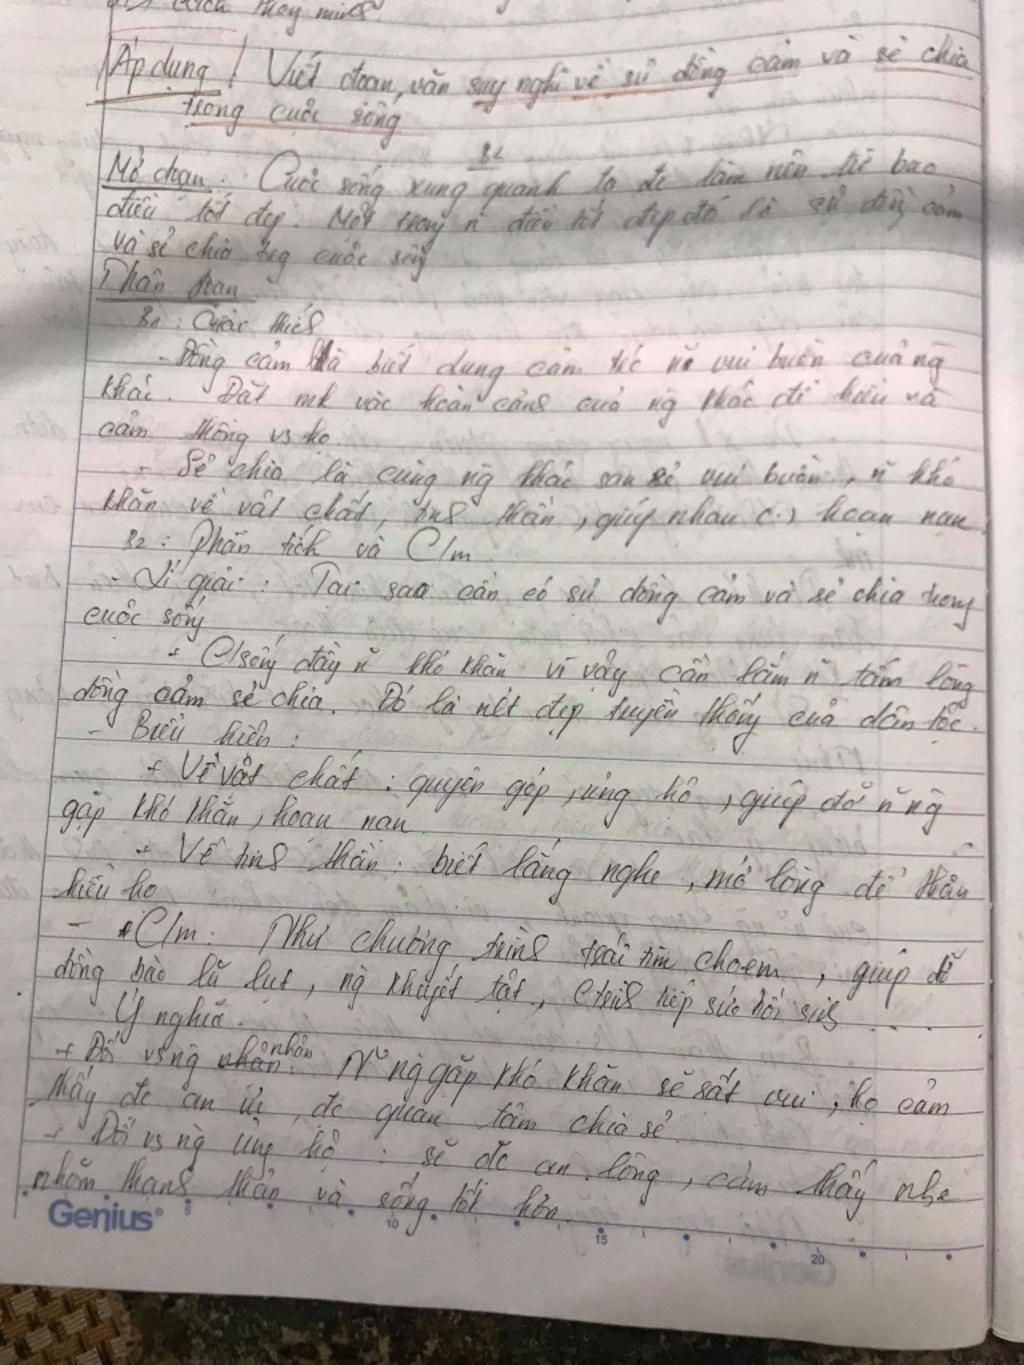 cách thay mình.
Áp dụng! Viết đoạn văn suy nghĩ về sự đồng cảm và sẻ chia
trong cuộc sống
Mở đoạn: Cuộc sống xung quanh ta đc làm nên từ bao
điều tốt đẹp. Một trong n̄ điều tốt đẹp đó là sự đồng cảm
và sẻ chia trg cuộc sống
Thân đoạn
B1: Giải thích
- Đồng cảm là biết dung cảm trc n̄ vui buồn của ng
khác. Đặt mk vào hoàn cảnh của ng khác để hiểu và
cảm thông vs họ
- Sẻ chia là cùng ng khác san sẻ vui buồn, n̄ khó
khăn về vật chất, tinh thần, giúp nhau hoạn nạn
B2: Phân tích và C/m
- Lí giải: Tại sao cần có sự đồng cảm và sẻ chia trong
cuộc sống
+ C/sống đầy n̄ khó khăn vì vậy cần lắm n̄ tấm lòng
đồng cảm sẻ chia. Đó là nét đẹp truyền thống của dân tộc.
- Biểu hiện:
+ Về vật chất: quyên góp, ủng hộ, giúp đỡ n̄ ng
gặp khó khăn, hoạn nạn
+ Về tinh thần: biết lắng nghe, mở lòng để thấu
hiểu họ
- C/m: Như chương trình trái tim cho em, giúp đỡ
đồng bào lũ lụt, ng khuyết tật, c/trình tiếp sức hồi sinh ....
Ý nghĩa.
+ Đối vs ng nhận: N̄ ng gặp khó khăn sẽ rất vui, họ cảm
thấy đc an ủi, đc quan tâm chia sẻ.
+ Đối vs ng ủng hộ: sẽ đc an lòng, cảm thấy nhẹ
nhõm thanh thản và sống tốt hơn.
Genius
5 10 15 20